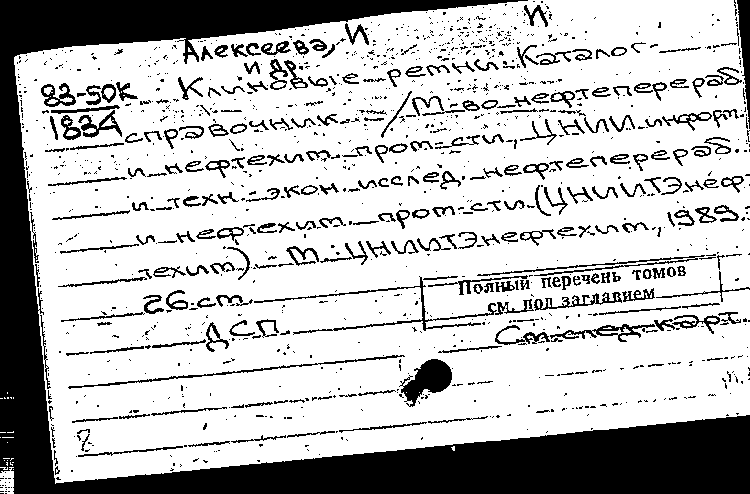 И
Алексеева, И
и др.
83-50К Клиновые ремни: Каталог-
1834 справочник / М-во нефтеперераб.
и нефтехим. пром-сти, ЦНИИ информ.
и техн.-экон. исслед. нефтеперераб.
и нефтехим. пром-сти (ЦНИИТЭнефте-
техим). - М.: ЦНИИТЭнефтехим, 1989. -
26 см.
Полный перечень томов
см. под заглавием
ДСП
См. след. карт.
8